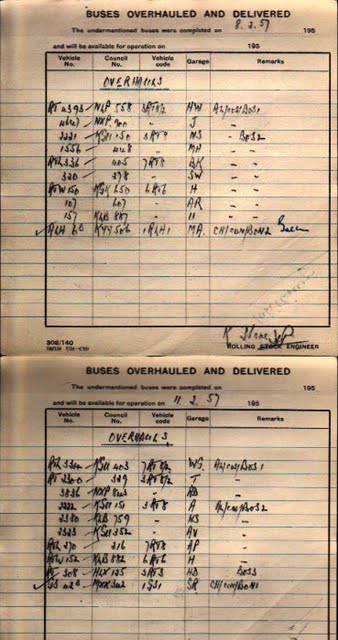 BUSES OVERHAULED AND DELIVERED
The undermentioned buses were completed on 8.2.57 195
and will be available for operation on 195
Vehicle No. Council No. Vehicle code Garage Remarks
OVERHAULS
RT 4393 NLP 558 3RT8/2 HW
NXP 900 J " "
2221 KGU 150 3RT8 NS " BOS2
1556 428 " MA " "
RTL 336 405 7RT8 BK " "
320 378 " SW " "
RTW 150 KGK 650 6RT6 H " "
107 607 " AR " "
157 KLB 887 " H " "
RLH 60 KYY 506 1RLH1 MA CH/COM/BON2
K
ROLLING STOCK ENGINEER
308/140
BUSES OVERHAULED AND DELIVERED
The undermentioned buses were completed on 195
and will be available for operation on 11.2.57 195
Vehicle No. Council No. Vehicle code Garage Remarks
OVERHAULS
KGU 403 7RT8/2 WG.
RT 2300 329 3RT8/2 T " "
3836 NXP 823 " RD " "
2222 KGU 151 3RT8 A
2380 KLB 759 " NS " "
2323 KGU 352 " AV " "
RTL 270 216 7RT8 AP " "
RTW 152 KLB 882 6RT6 H " "
RT 308 HLX 125 3RT3 HD BOS3
GS 42 MXX 342 1GS1 SR CH/COM/BON1